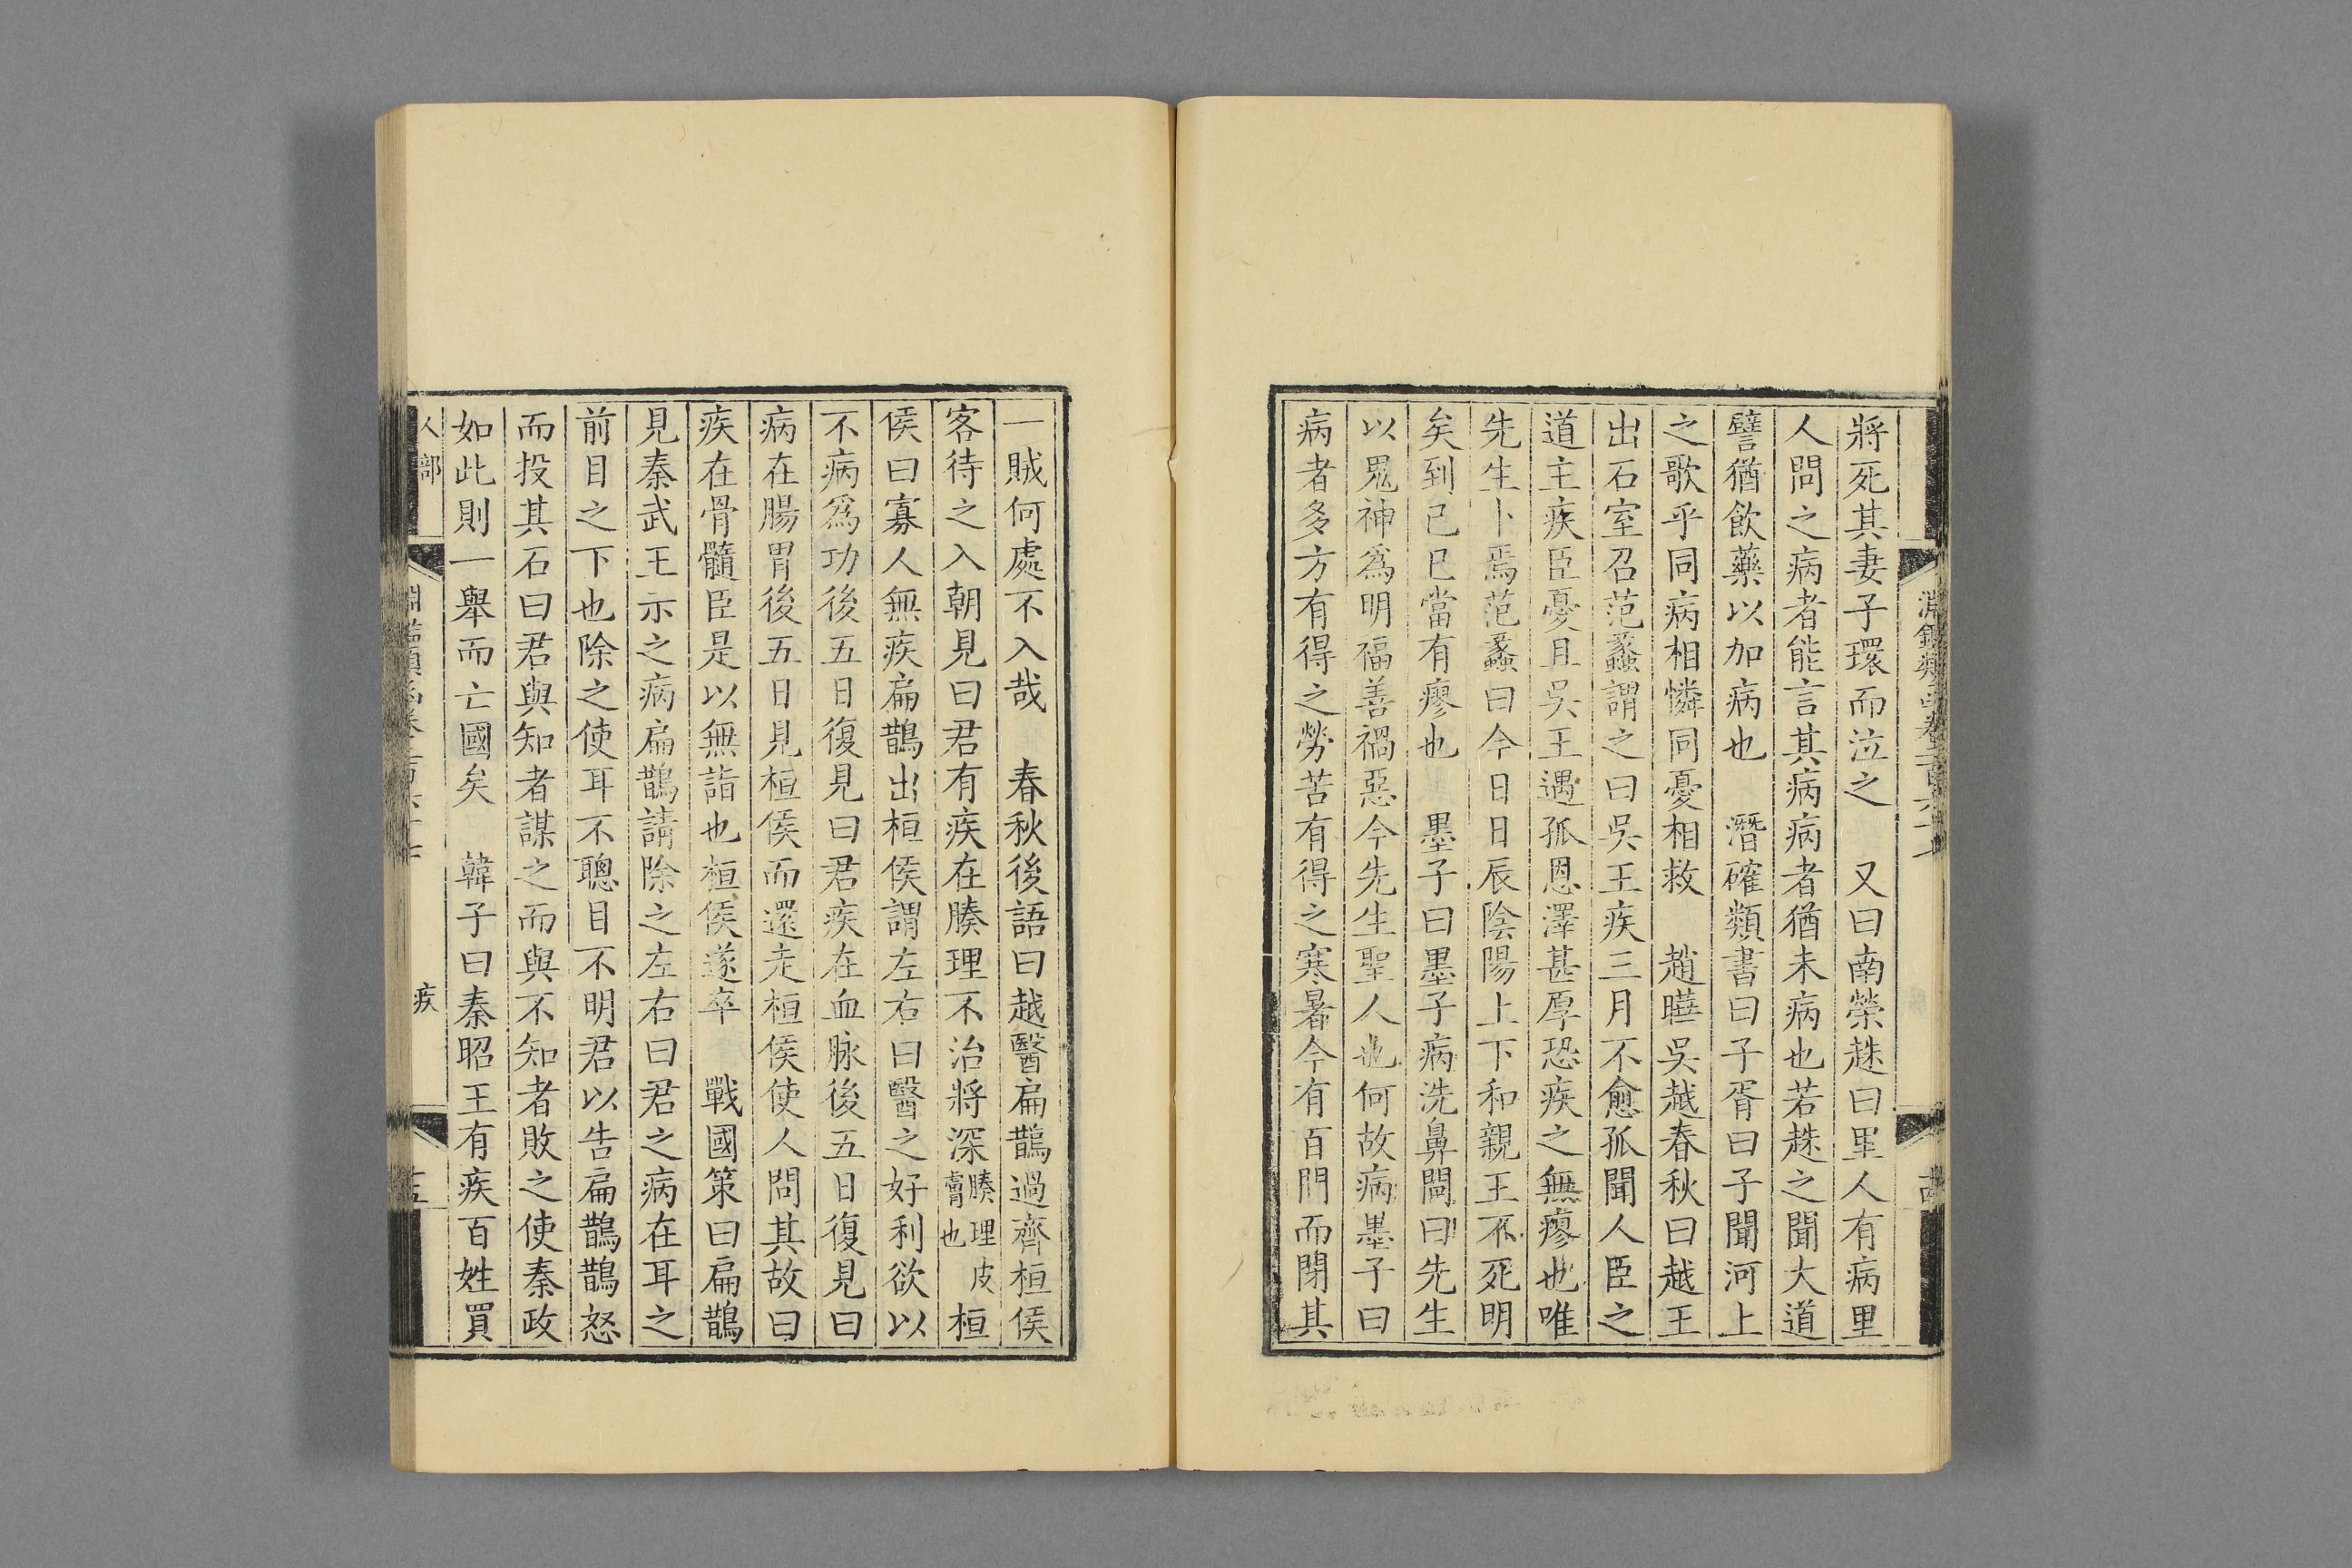 將死其妻子環而泣之　又曰南榮趎曰里人有病里
人問之病者能言其病病者猶未病也若趎之聞大道
譬猶飲藥以加病也　潛確類書曰子胥曰子聞河上
之歌乎同病相憐同憂相救　趙曄吳越春秋曰越王
出石室召范蠡謂之曰吳王疾三月不愈孤聞人臣之
道主疾臣憂且吳王遇孤恩澤甚厚恐疾之無瘳也唯
先生卜焉范蠡曰今日日辰陰陽上下和親王不死明
矣到己巳當有瘳也　墨子曰墨子病洗鼻問曰先生
以鬼神為明福善禍惡今先生聖人也何故病墨子曰
病者多方有得之勞苦有得之寒暑今有百門而閉其
一賊何處不入哉　春秋後語曰越醫扁鵲過齊桓侯
客待之入朝見曰君有疾在腠理不治將深腠理皮膚也桓
侯曰寡人無疾扁鵲出桓侯謂左右曰醫之好利欲以
不病為功後五日復見曰君疾在血脉後五日復見曰
病在腸胃後五日見桓侯而還走桓侯使人問其故曰
疾在骨髓臣是以無詣也桓侯遂卒　戰國策曰扁鵲
見秦武王示之病扁鵲請除之左右曰君之病在耳之
前目之下也除之使耳不聰目不明君以告扁鵲鵲怒
而投其石曰君與知者謀之而與不知者敗之使秦政
如此則一舉而亡國矣　韓子曰秦昭王有疾百姓買
人部
疾